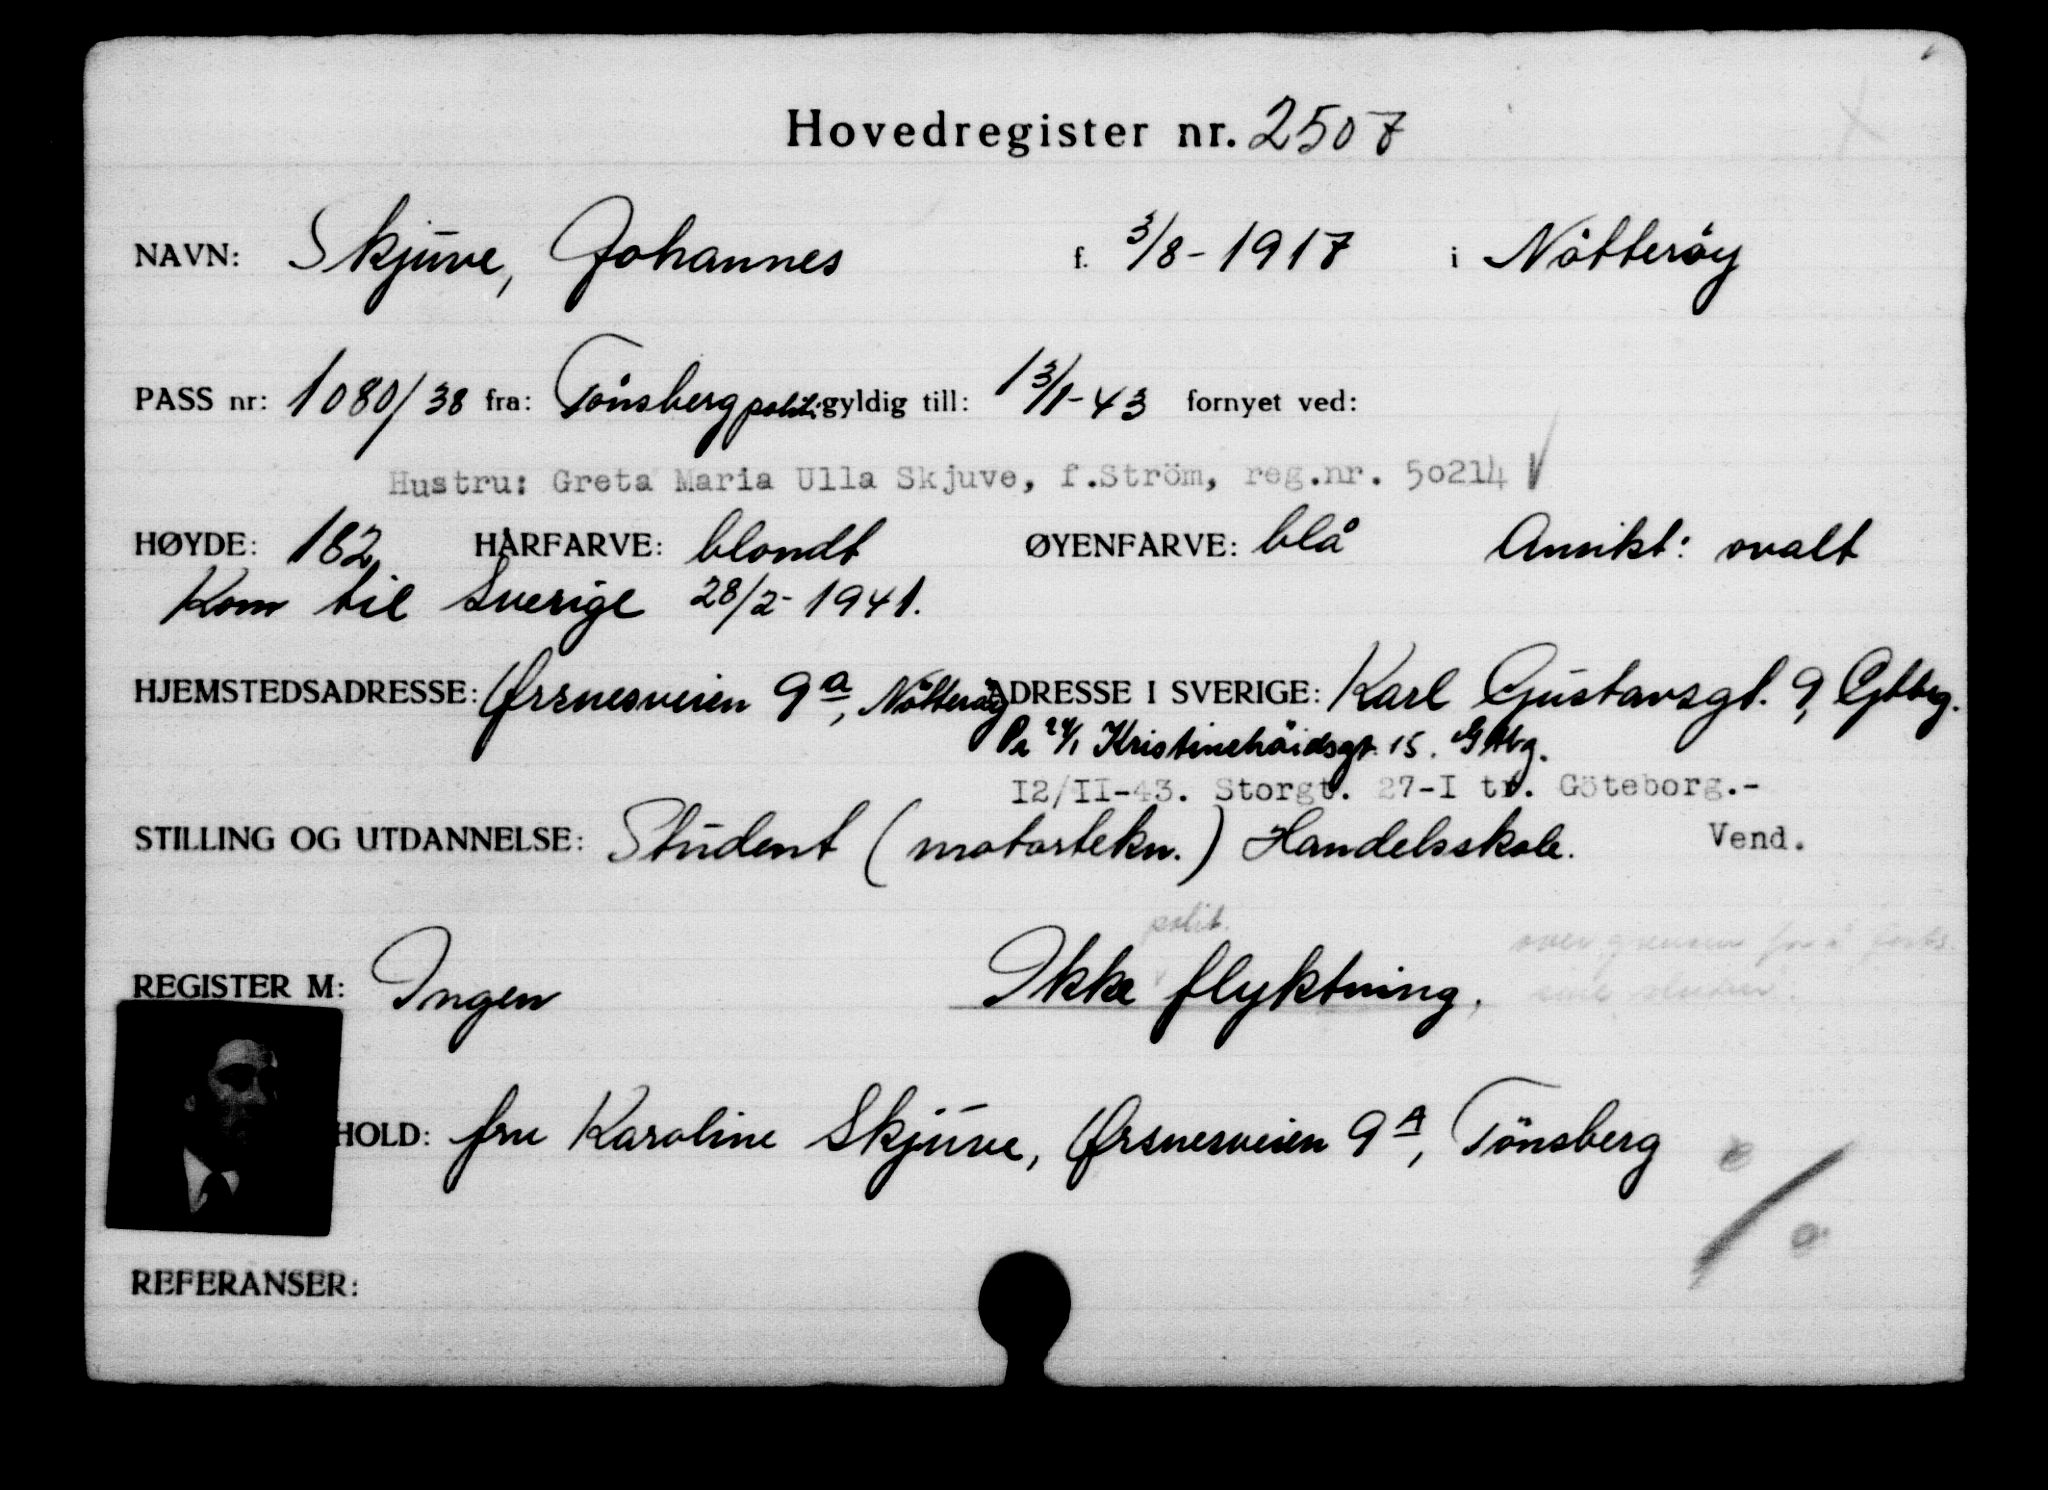 Hovedregister nr. 2507
NAVN: Skjuve, Johannes f. 3/8-1917 i Nötteröy
PASS nr: 1080/38 fra: Tönsberg politi gyldig till: 13/1-43 fornyet ved:
Hustru: Greta Maria Ulla Skjuve, f.Ström, reg.nr. 50214 V
HØYDE: 182 HÅRFARVE: blondt ØYENFARVE: blå Ansikt: ovalt
Kom til Sverige 28/2-1941.
HJEMSTEDSADRESSE: Ørsnesveien 9a, Nötteröy ADRESSE I SVERIGE: Karl Gustavsgt. 9, Gtbg.
Kristinehöidsgt. 15. Gtbg.
I2/II-43. Storgt. 27-I tr. Göteborg.-
STILLING OG UTDANNELSE: Student (motortekn.) Handelsskole. Vend.
polit.
REGISTER M: Ingen Ikke flyktning, over grensen for å
sine studier.
HOLD: fru Karoline Skjuve, Ørsnesveien 9A, Tönsberg
REFERANSER: